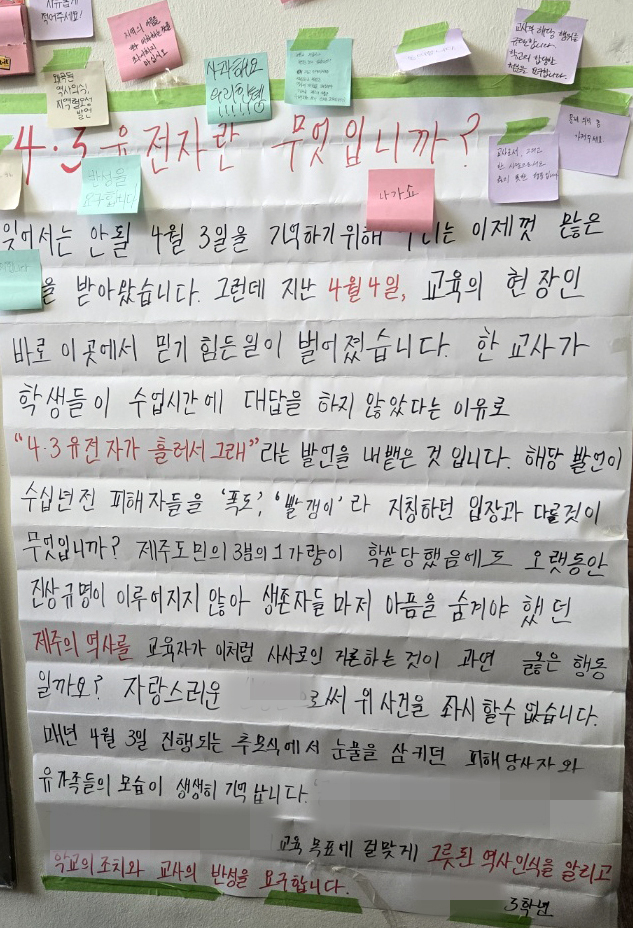 적어주세요!
지역의 아픔을
사과해요
교사의 해당 행위를
규탄합니다
왜곡된
역사의식,
지역혐오적
발언
4·3 유전자란 무엇입니까?
반성을
요구합니다
나가요
잊어서는 안될 4월 3일을 기억하기위해 이제껏 많은
을 받아왔습니다. 그런데 지난 4월 4일, 교육의 현장인
바로 이곳에서 믿기 힘든일이 벌어졌습니다. 한 교사가
학생들이 수업시간에 대답을 하지 않았다는 이유로
"4·3 유전자가 흘러서 그래"라는 발언을 내뱉은 것 입니다. 해당 발언이
수십년전 피해자들을 '폭도', '빨갱이'라 지칭하던 입장과 다를것이
무엇입니까? 제주도민의 3분의 1 가량이 학살당했음에도 오랫동안
진상규명이 이루어지지 않아 생존자들마저 아픔을 숨겨야 했던
제주의 역사를 교육자가 이처럼 사사로이 거론하는 것이 과연 옳은 행동
일까요? 자랑스러운 로써 위 사건을 좌시 할수 없습니다.
매년 4월 3일 진행되는 추모식에서 눈물을 삼키던 피해당사자와
유가족들의 모습이 생생히 기억납니다.
교육 목표에 걸맞게 그릇된 역사인식을 알리고
학교의 조치와 교사의 반성을 요구합니다.
3학년